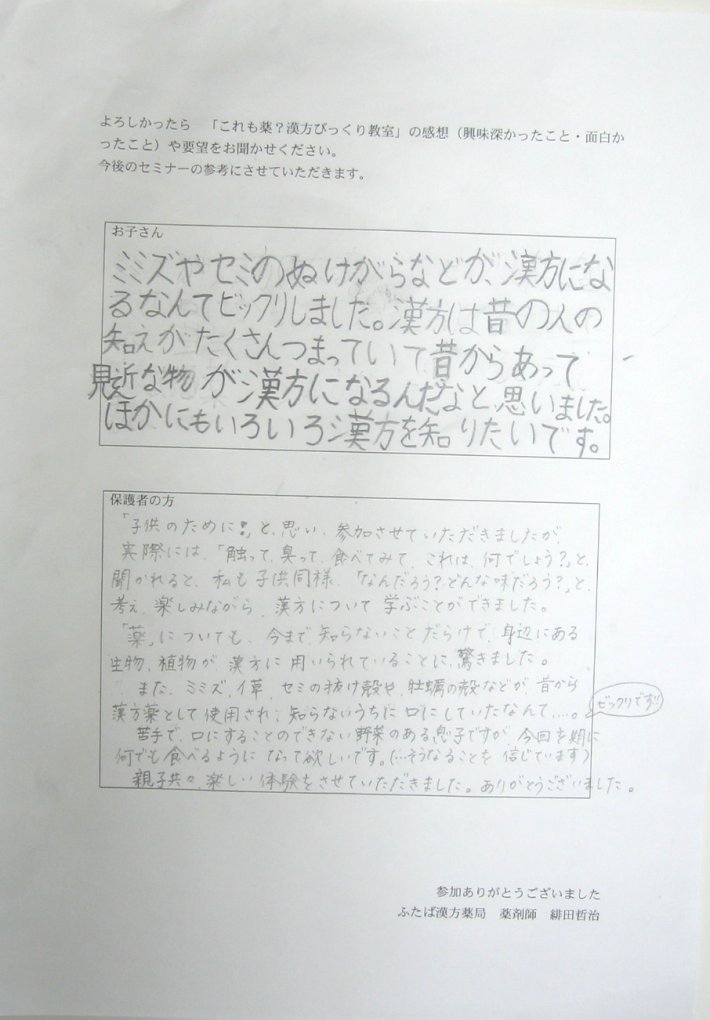 よろしかったら　「これも薬？漢方びっくり教室」の感想（興味深かったこと・面白か
ったこと）や要望をお聞かせください。
今後のセミナーの参考にさせていただきます。
お子さん
ミミズやセミのぬけがらなどが、漢方にな
るなんてビックリしました。漢方は昔の人の
知えがたくさんつまっていて昔からあって
見近な物が漢方になるんだなと思いました。
ほかにもいろいろ漢方を知りたいです。
保護者の方
「子供のために!」と、思い、参加させていただきましたが、
実際には、「触って、臭って、食べてみて、これは、何でしょう?」と、
聞かれると、私も子供同様、「なんだろう?どんな味だろう?」と、
考え、楽しみながら、漢方について学ぶことができました。
「薬」についても、今まで知らないことだらけで、身辺にある
生物、植物が、漢方に用いられていることに、驚きました。
また、ミミズ、イ草、セミの抜け殻や、牡蠣の殻などが、昔から
漢方薬として使用され、知らないうちに口にしていたなんて……。
ビックリです!!
苦手で、口にすることのできない野菜のある息子ですが、今回を期に
何でも食べるようになって欲しいです。(…そうなることを信じています)
親子共々、楽しい体験をさせていただきました。ありがとうございました。
参加ありがとうございました
ふたば漢方薬局　薬剤師　緋田哲治